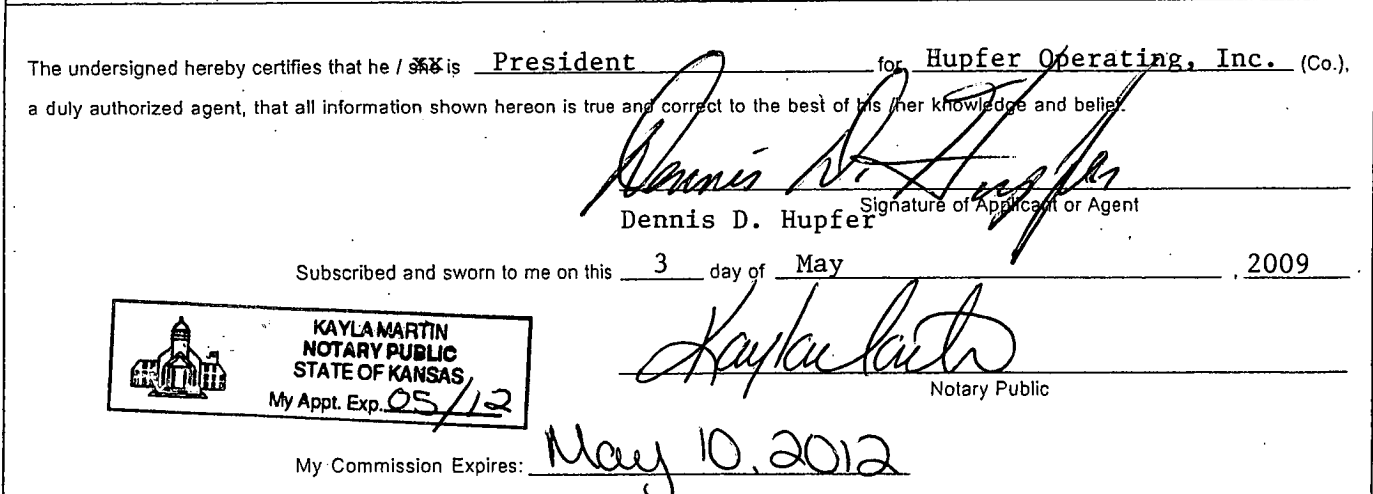 The undersigned hereby certifies that he / she is President for Hupfer Operating, Inc. (Co.),
a duly authorized agent, that all information shown hereon is true and correct to the best of his /her knowledge and belief.
Dennis D. Hupfer
Signature of Applicant or Agent
Dennis D. Hupfer
Subscribed and sworn to me on this 3 day of May , 2009 .
KAYLA MARTIN
NOTARY PUBLIC
STATE OF KANSAS
My Appt. Exp. 05/12
Kayla Martin
Notary Public
My Commission Expires: May 10, 2012